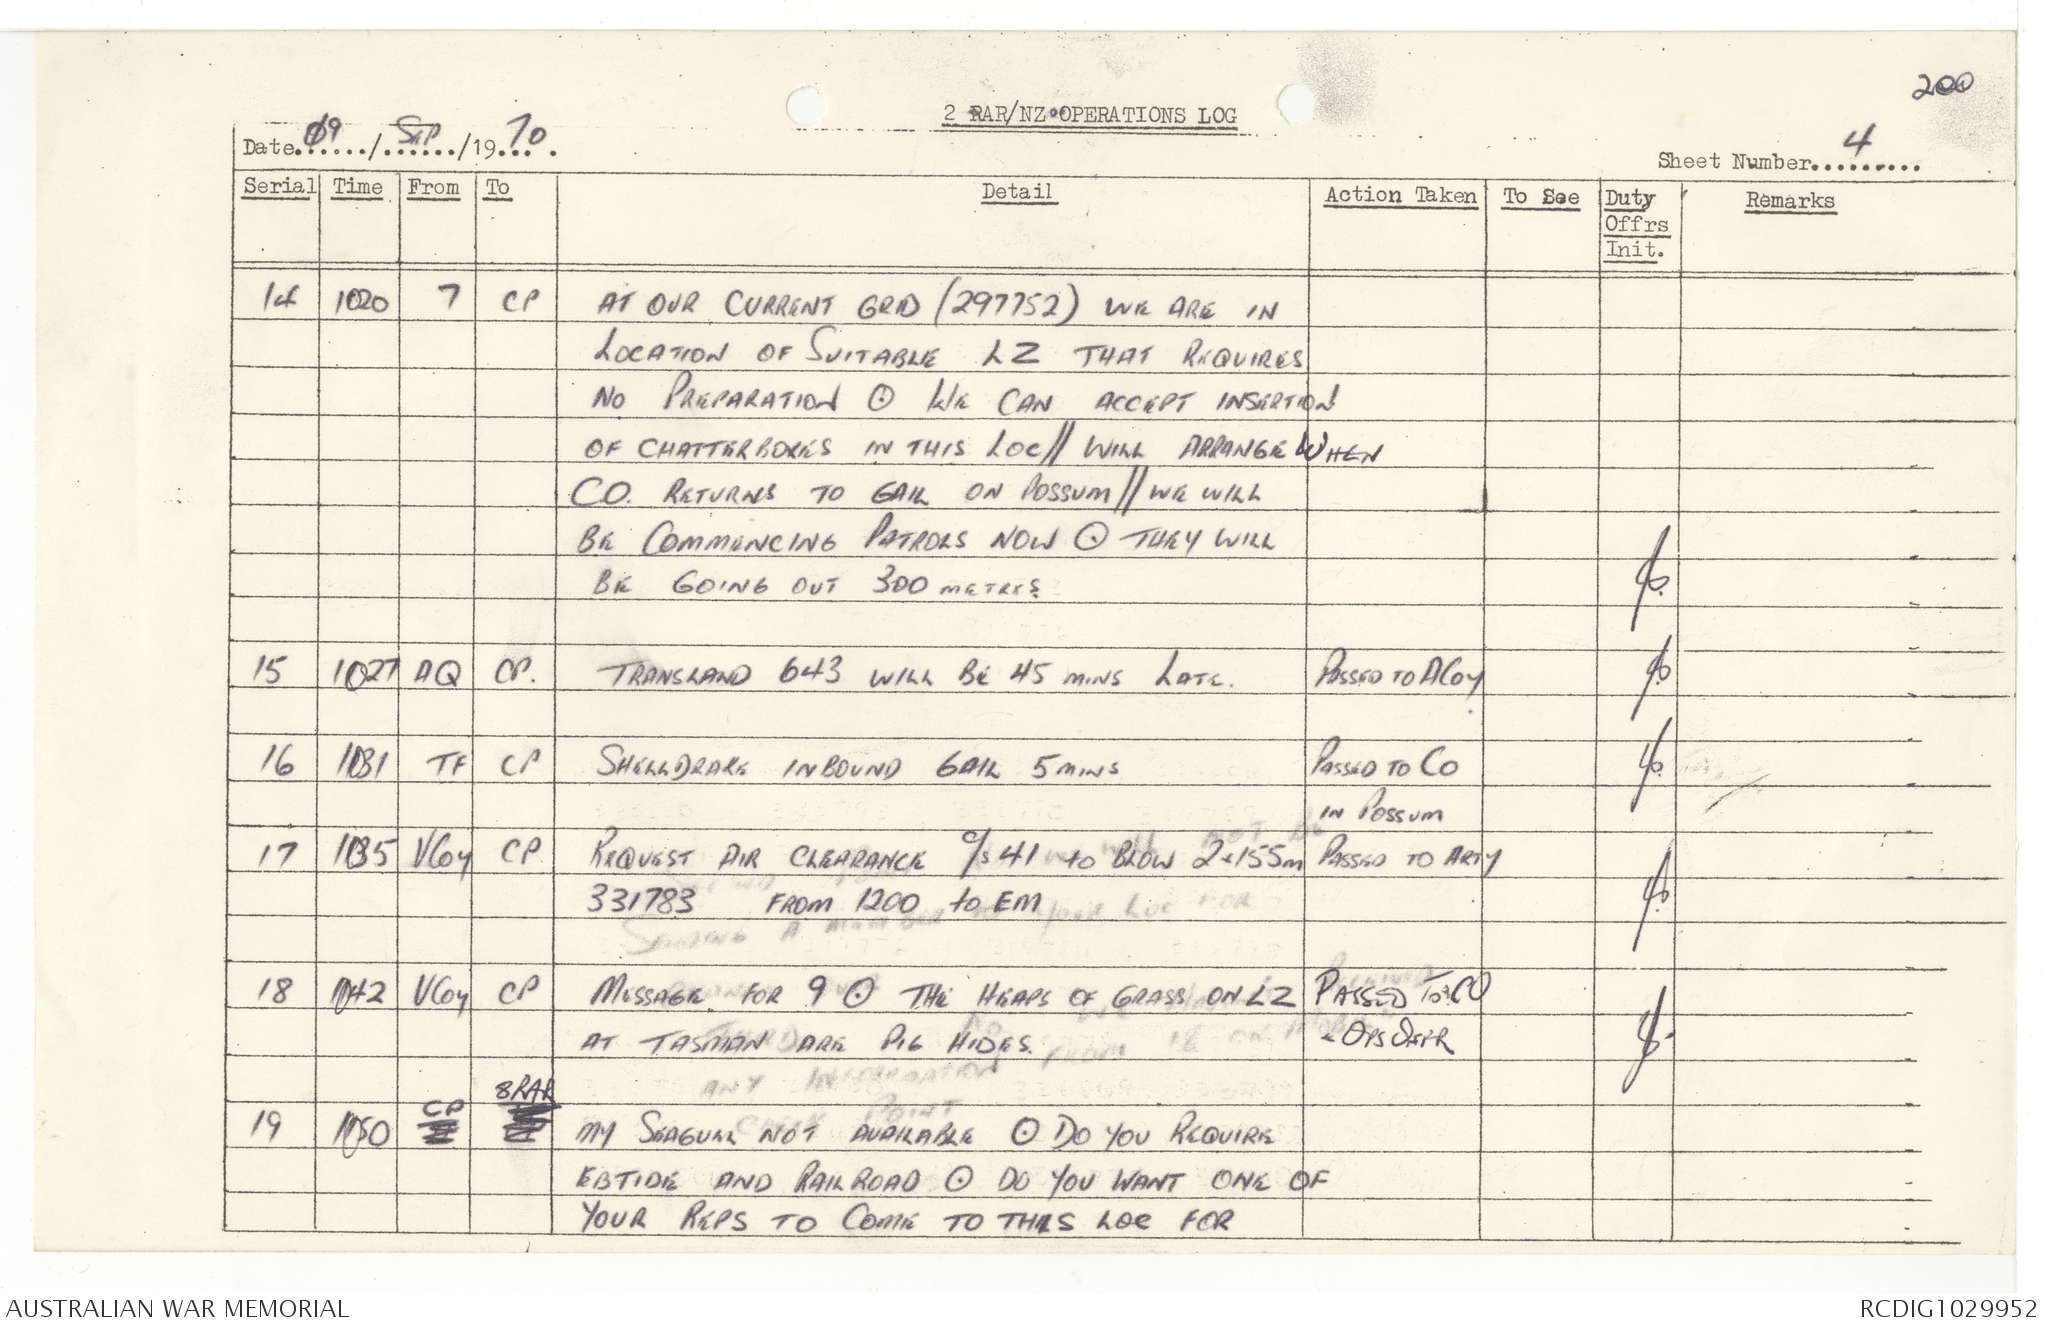 200
2 RAR/NZ OPERATIONS LOG
Date 09/SEP/1970.
Sheet Number 4
Serial Time From To Detail Action Taken To See Duty Offrs Init. Remarks
14 1020 7 CP AT OUR CURRENT GRID (297752) WE ARE IN
LOCATION OF SUITABLE LZ THAT REQUIRES
NO PREPARATION ⊙ WE CAN ACCEPT INSERTION
OF CHATTERBOXES IN THIS LOC // WILL ARRANGE WHEN
CO. RETURNS TO GAIL ON POSSUM // WE WILL
BE COMMENCING PATROLS NOW ⊙ THEY WILL
BE GOING OUT 300 METRES.
15 1027 AQ CP. TRANSLAND 643 WILL BE 45 MINS LATE. PASSED TO A Coy
16 1031 TF CP SHELLDRAKE INBOUND GAIL 5 MINS PASSED TO CO
IN POSSUM
17 1035 V Coy CP REQUEST AIR CLEARANCE C/S 41 to BLOW 2x155m PASSED TO ARTY
331783 FROM 1200 to EM
18 1042 V Coy CP MESSAGE FOR 9 ⊙ THE HEAPS OF GRASS ON LZ PASSED TO CO
AT TASMAN ARE PIG HIDES. + OPS OFFR
19 1050 CP 8RAR MY SEAGULL NOT AVAILABLE ⊙ DO YOU REQUIRE
EBTIDE AND RAILROAD ⊙ DO YOU WANT ONE OF
YOUR REPS TO COME TO THIS LOC FOR
AUSTRALIAN WAR MEMORIAL
RCDIG1029952